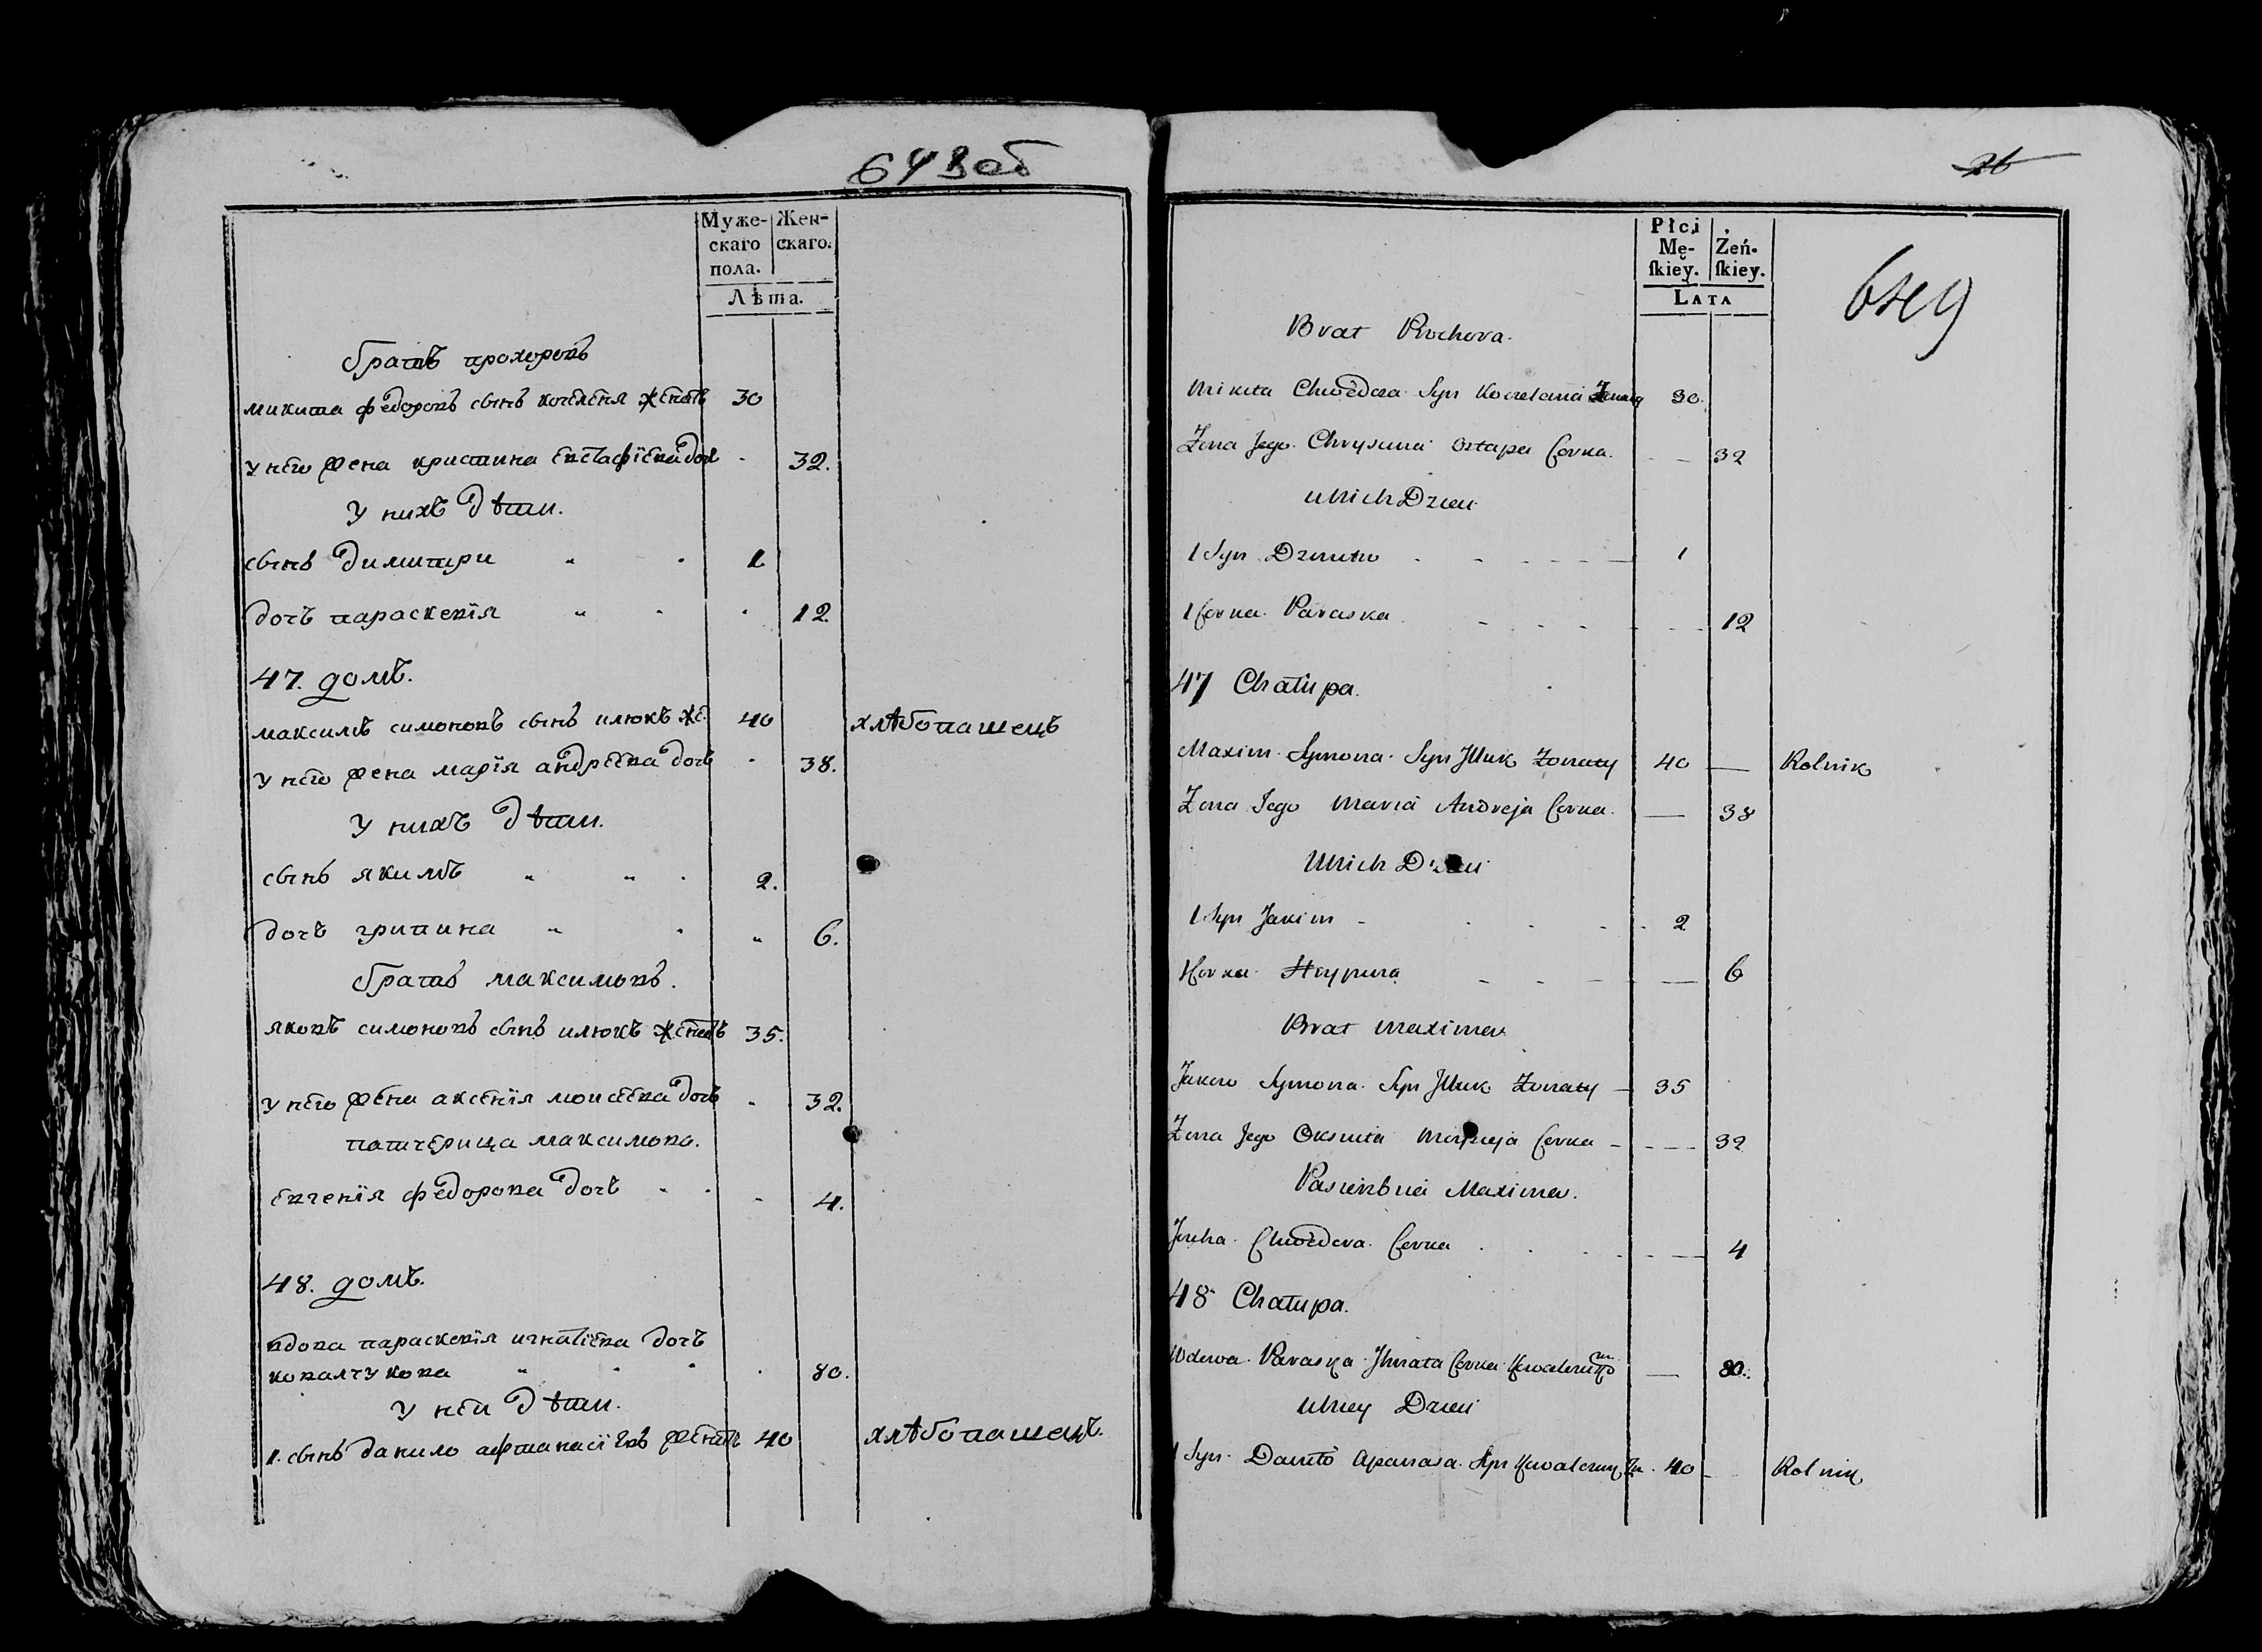 643 об
Муже-
скаго
пола.
Жен-
скаго.
Лѣта.
братъ прохоровъ
микита федоровъ сынъ женатъ 30
у него жена кристина евстафіева доч - 32.
у нихъ дѣти.
сынъ димитри 1
дочъ параскевія 12.
47. домъ.
максимъ симоновъ сынъ илюкъ же. 40 хлѣбопашецъ
у него жена марія андрѣева дочъ 38.
у нихъ дѣти.
сынъ якимъ 2.
дочъ грипина 6.
братъ максимовъ.
яковъ симоновъ сынъ илюкъ женатъ 35.
у него жена аксенія моисеева дочъ 32.
патчерица максимова.
евгенія федорова дочъ 4.
48. домъ.
вдова параскевія игнатіева дочъ
ковалчукова 80.
у неи дѣти.
1. сынъ данило афтанасіевъ женатъ 40 хлѣбопашецъ.
26
Płci
Mę-
ſkiey.
Żeń-
ſkiey.
LATA
Brat Prochora.
Mikita Chwedora Syn Żonaty 30.
Żona Jego Chrysina Ostapa Corka. 32
U Nich Dzieci
1 Syn Dzmitro 1
1 Corka Paraska 12
47 Chałupa.
Maxim Symona Syn Jlluk Żonaty 40 Rolnik
Żona Jego Maria Andreja Corka. 38
U Nich Dzieci
1 Syn Jakim 2
1 Corka Hrypina 6
Brat Maxima
Jakow Symona Syn Jlluk Żonaty 35
Żona Jego Corka 32
Pasierbica Maxima.
Chwedora Corka 4
48 Chałupa.
Wdowa Paraska Jhnata Corka 80.
U Niey Dzieci
1 Syn Daniło Apanasa Syn Kowalczuk Żo. 40 Rolnik